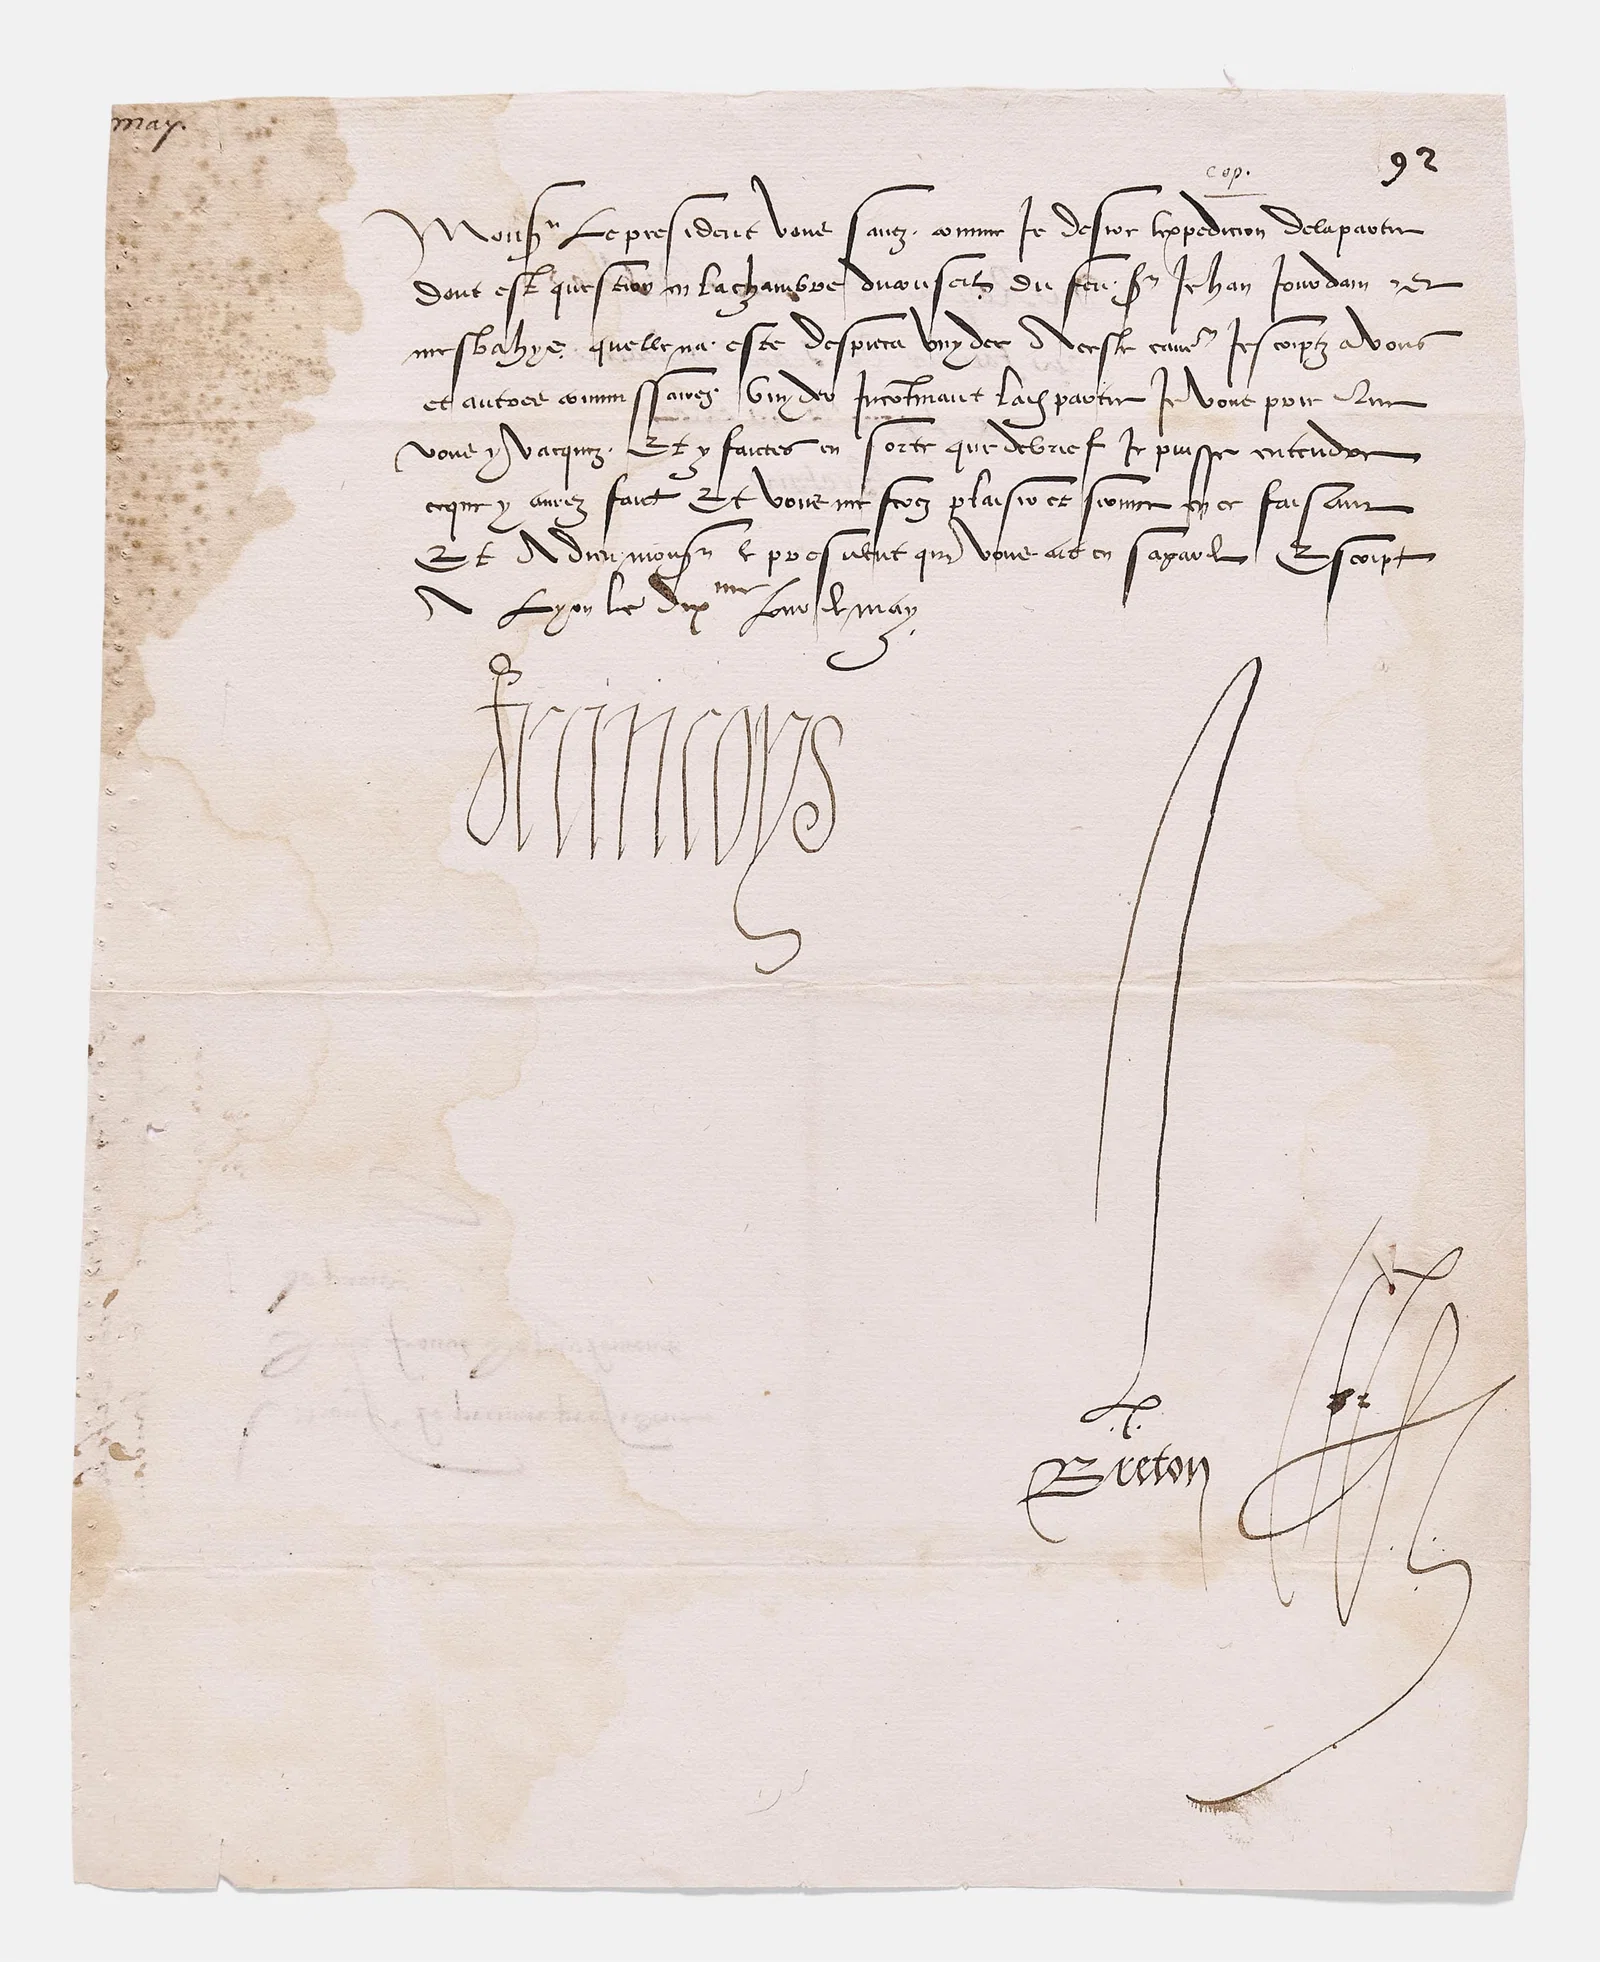 may.
92
cop.
Monsr Le president vous sauez comme Je desire lexpedicion de la partie
dont est question en la chambre du conseil du feu sr Jehan Jourdain Et
mesbahys quelle na este despieca vuydee A ceste cause Jescriptz a vous
et autres commissaires vuyder Incontinant lad partie Je vous prie Que
vous y vacquez Et y faictes en sorte que de brief Je puisse entendre
ce que y aurez faict Et vous me ferez plaisir et seruice en ce faisant
Et A dieu monsr le president qui vous ait en sa garde Escript
A Lyon le dixme Jour de may
Francoys
Breton